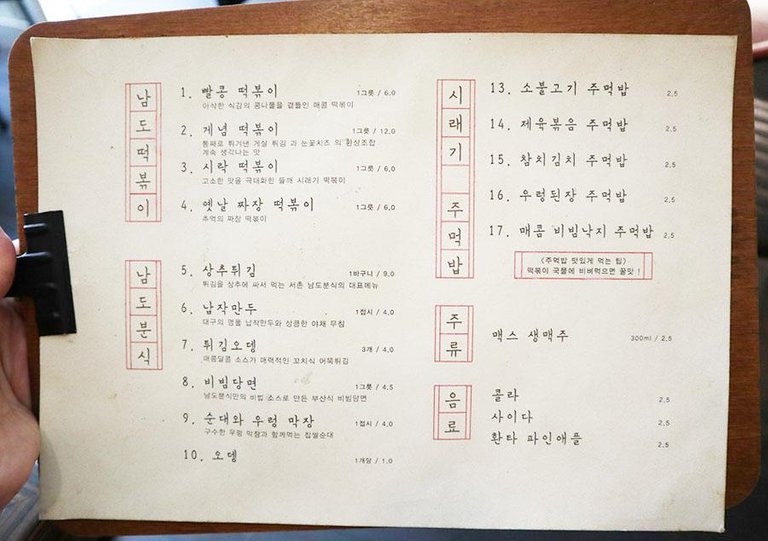 남도떡볶이
1. 빨콩 떡볶이 1그릇 / 6.0
아삭한 식감의 콩나물을 곁들인 매콤 떡볶이
2. 게념 떡볶이 1그릇 / 12.0
통째로 튀겨낸 게살 튀김 과 눈꽃치즈 의 환상조합
계속 생각나는 맛
3. 시락 떡볶이 1그릇 / 6.0
고소한 맛을 극대화한 들깨 시래기 떡볶이
4. 옛날 짜장 떡볶이 1그릇 / 6.0
추억의 짜장 떡볶이
남도분식
5. 상추튀김 1바구니 / 9.0
튀김을 상추에 싸서 먹는 서촌 남도분식의 대표메뉴
6. 납작만두 1접시 / 4.0
대구의 명물 납작만두와 상큼한 야채 무침
7. 튀김오뎅 3개 / 4.0
매콤달콤 소스가 매력적인 꼬치식 어묵튀김
8. 비빔당면 1그릇 / 4.5
남도분식만의 비법 소스로 만든 부산식 비빔당면
9. 순대와 우렁 막장 1접시 / 4.0
구수한 우렁 막장과 함께먹는 찹쌀순대
10. 오뎅 1개당 / 1.0
시래기 주먹밥
13. 소불고기 주먹밥 2.5
14. 제육볶음 주먹밥 2.5
15. 참치김치 주먹밥 2.5
16. 우렁된장 주먹밥 2.5
17. 매콤 비빔낙지 주먹밥 2.5
<주먹밥 맛있게 먹는 팁>
떡볶이 국물에 비벼먹으면 꿀맛 !
주류
맥스 생맥주 300ml / 2.5
음료
콜라 2.5
사이다 2.5
환타 파인애플 2.5